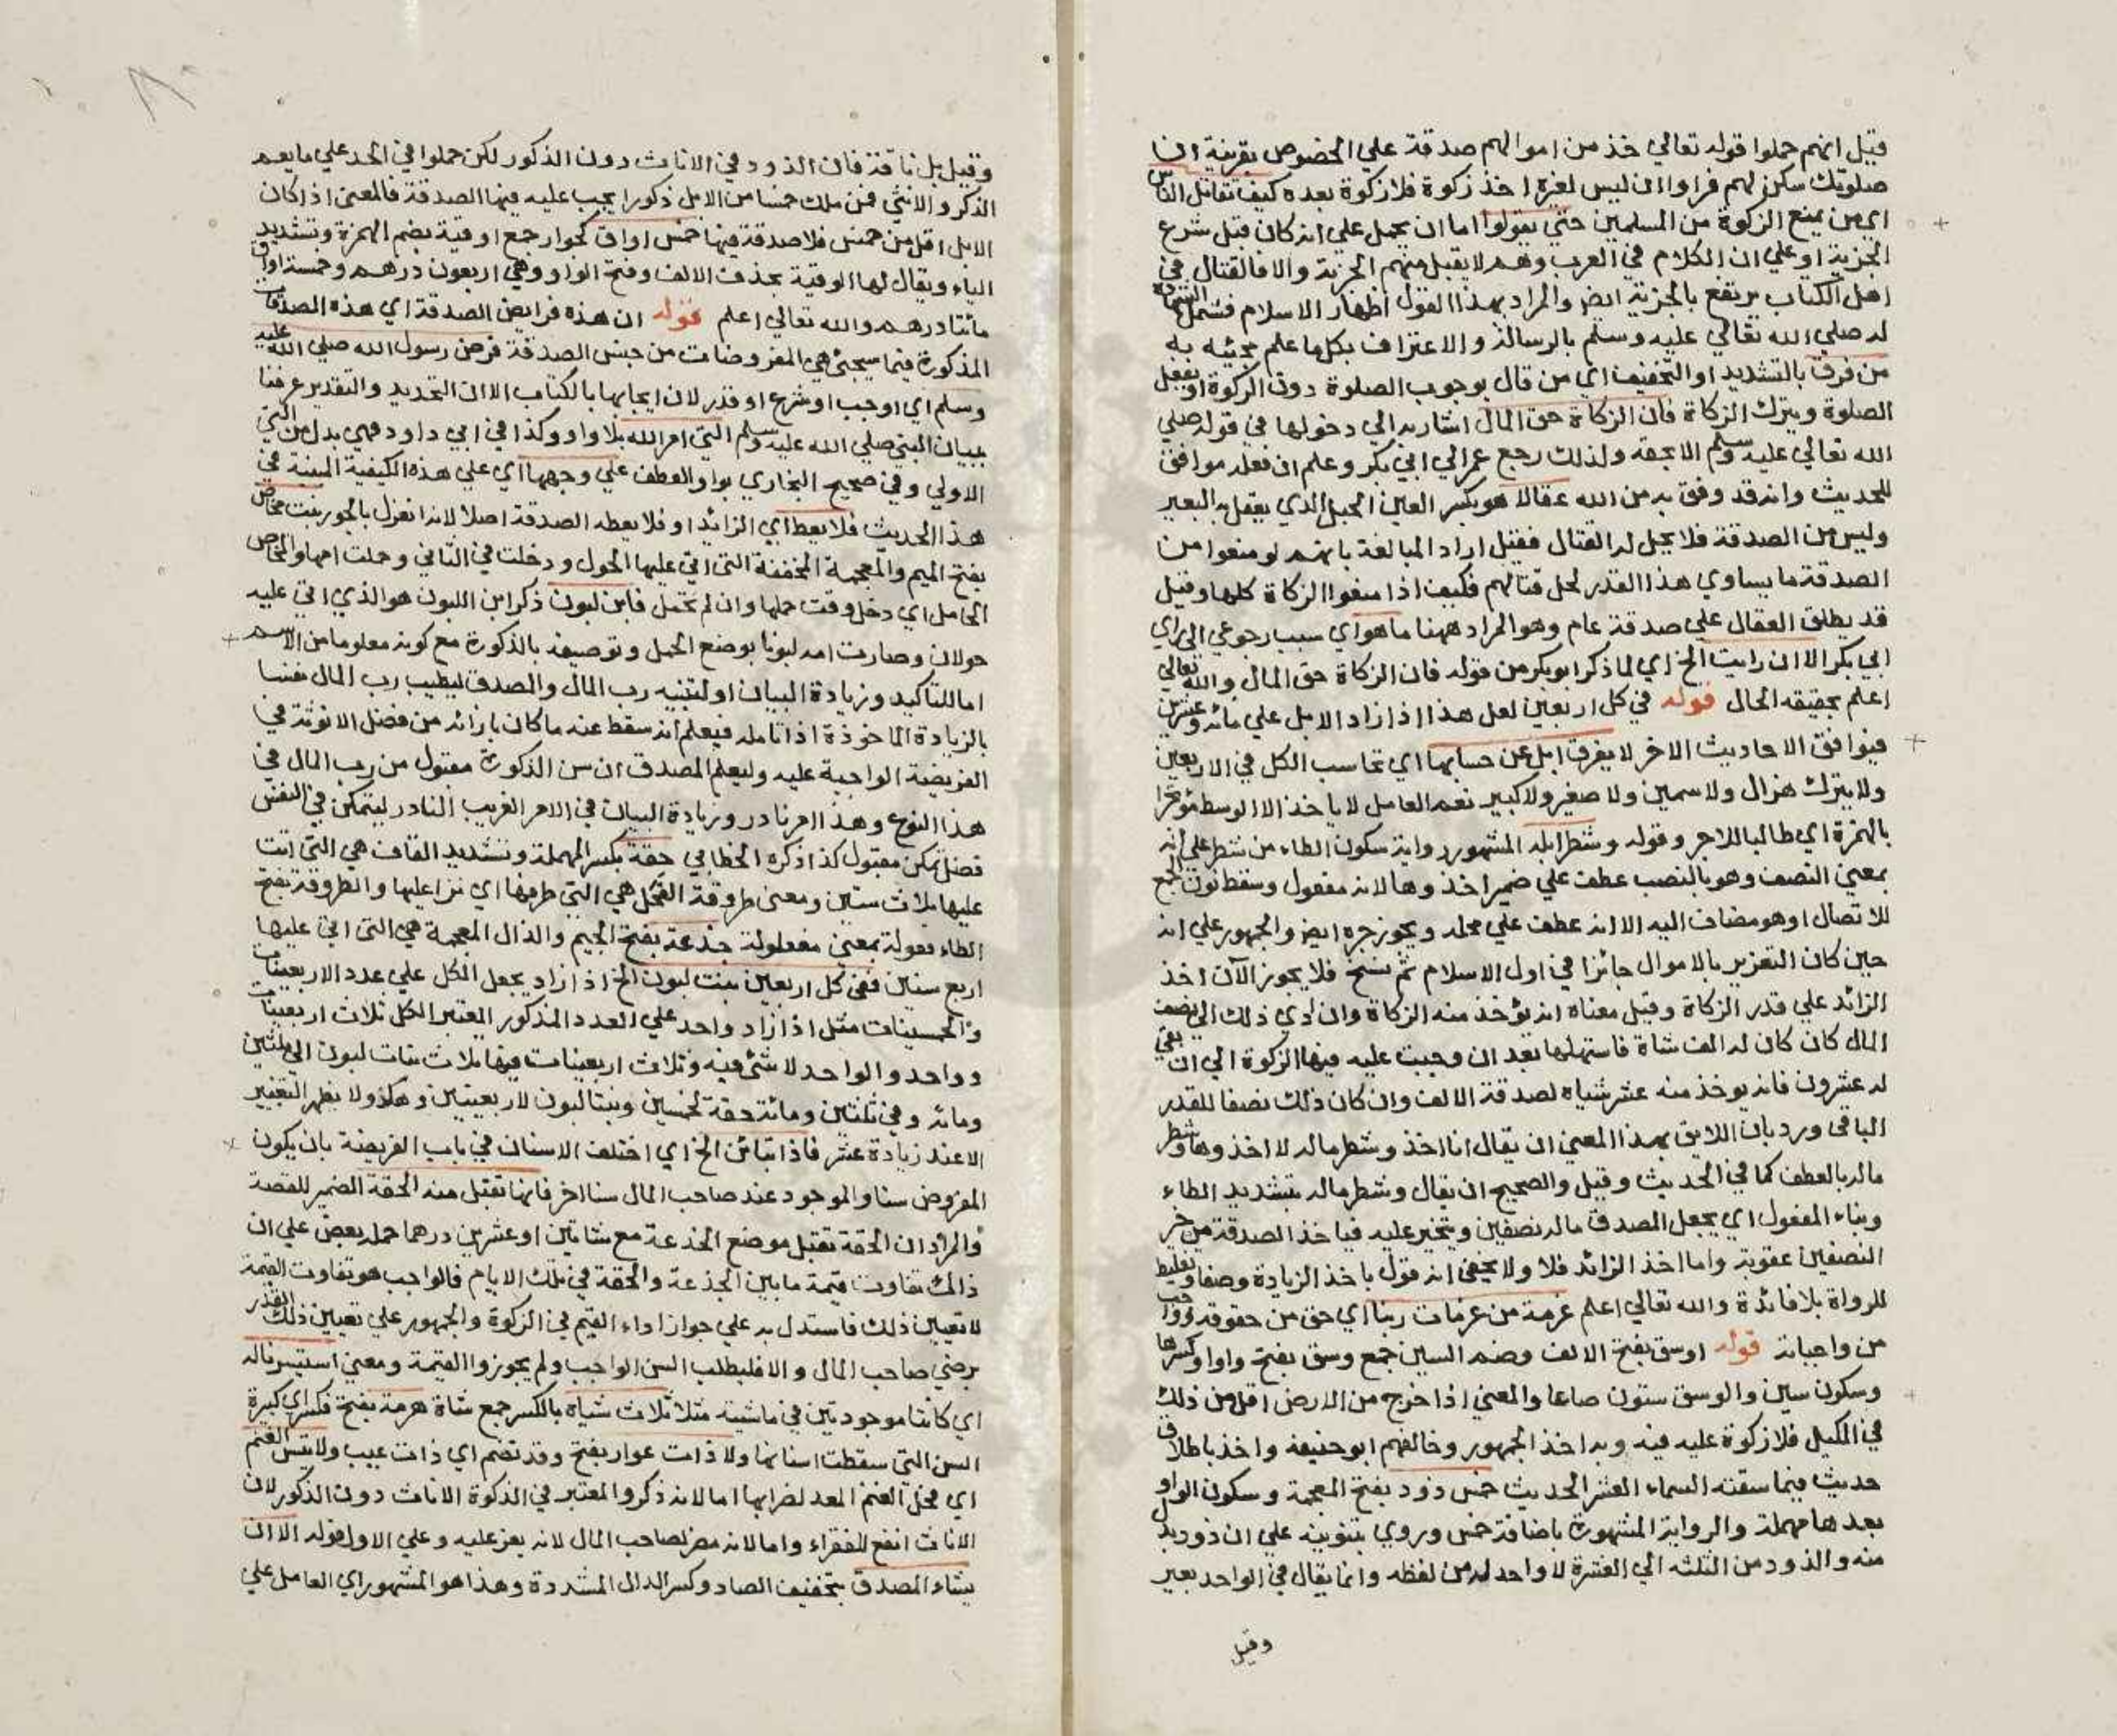 قيل انهم حملوا قوله تعالي خذ من اموالهم صدقة علي الخصوص بقرينة ان
صلوتك سكن لهم فراوا ان ليس لغيره اخذ زكوة فلا زكوة بعده كيف تقاتل الناس
اي من يمنع الزكوة من المسلمين حتي يقولوا اما ان يحمل علي انه كان قبل شرع
الجزية او علي ان الكلام في العرب وهم لا يقبل منهم الجزية والا فالقتال في
اهل الكتاب يرتفع بالجزية ايض والمراد بهذا القول اظهار الاسلام فشمل الشهادة
له صلي الله تعالي عليه وسلم بالرسالة والاعتراف بكل ما علم مجيئه به
من فرق بالتشديد او التخفيف اي من قال بوجوب الصلوة دون الزكوة او يفعل
الصلوة ويترك الزكاة فان الزكاة حق المال اشار به الي دخولها في قوله صلي
الله تعالي عليه وسلم الا بحقه ولذلك رجع عمر الي ابي بكر وعلم ان فعله موافق
للحديث وانه قد وفق به من الله عقالا هو بكسر العين الحبل الذي يعقل به البعير
وليس من الصدقة فلا يحل له القتال فقيل اراد المبالغة بانهم لو منعوا من
الصدقة ما يساوي هذا القدر لحل قتالهم فكيف اذا منعوا الزكاة كلها وقيل
قد يطلق العقال علي صدقة عام وهو المراد ههنا ما هو اي سبب رجوعي الي راي
ابي بكر الا ان رايت الخ اي لما ذكر ابو بكر من قوله فان الزكاة حق المال والله تعالي
اعلم بحقيقه الحال قوله في كل اربعين لعل هذا اذا زاد الابل علي مائه وعشرين
فيوافق الاحاديث الاخر لا يفرق ابل عن حسابها اي تحاسب الكل في الاربعين
ولا يترك هزال ولا سمين ولا صغير ولا كبير نعم العامل لا ياخذ الا الوسط مؤتجرا
بالهمزة اي طالبا للاجر وقوله وشطر ابله المشهور رواية سكون الطاء من شطر علي انه
بمعني النصف وهو بالنصب عطف علي ضمير اخذوها لانه مفعول وسقط نون الجمع
للاتصال او هو مضاف اليه الا انه عطف علي محله ويجوز جره ايض والجمهور علي انه
حين كان التعزير بالاموال جائزا في اول الاسلام ثم نسخ فلا يجوز الآن اخذ
الزائد علي قدر الزكاة وقيل معناه انه يؤخذ منه الزكاة وان ادي ذلك الي نصف
المال كان كان له الف شاة فاستهلها بعد ان وجبت عليه فيها الزكوة الي ان بقي
له عشرون فانه يوخذ منه عشر شياه لصدقة الالف وان كان ذلك نصفا للقدر
الباقي ورد بان اللايق بهذا المعني ان يقال انا اخذ وشطر ماله لا اخذوها وشطر
ماله بالعطف كما في الحديث وقيل والصحيح ان يقال وشطر ماله بتشديد الطاء
وبناء المفعول اي يجعل المصدق ماله نصفين ويتخير عليه فياخذ الصدقة من خير
النصفين عقوبة واما اخذ الزائد فلا ولا يخفي انه قول باخذ الزيادة وصفا وتغليط
للرواة بلا فائدة والله تعالي اعلم عزمة من عزمات ربنا اي حق من حقوقه وواجب
من واجباته قوله اوسق بفتح الالف وضم السين جمع وسق بفتح واو او كسرها
وسكون سين والوسق ستون صاعا والمعني اذا خرج من الارض اقل من ذلك
في المكيل فلا زكوة عليه فيه وبه اخذ الجمهور وخالفهم ابو حنيفة واخذ باطلاق
حديث فيما سقته السماء العشر الحديث خمس ذود بفتح المعجمة وسكون الواو
بعدها مهملة والرواية المشهورة باضافة خمس وروي بتنوينه علي ان ذود بدل
منه والذود من الثلثه الي العشرة لا واحد له من لفظه وانما يقال في الواحد بعير
وقيل
وقيل بل ناقة فان الذود في الاناث دون الذكور لكن حملوا في الحد علي ما يعم
الذكر والانثي فمن ملك خمسا من الابل ذكورا يجب عليه فيها الصدقة فالمعني اذا كان
الابل اقل من خمس فلا صدقة فيها خمس اواق كجوار جمع اوقية بضم الهمزة وتشديد
الياء ويقال لها الوقية بحذف الالف وفتح الواو وهي اربعون درهم وخمسة اواق
مائتا درهم والله تعالي اعلم قوله ان هذه فرايض الصدقة اي هذه الصدقات
المذكورة فيما سيجئ هي المفروضات من جنس الصدقة فرض رسول الله صلي الله عليه
وسلم اي اوجب او شرع او قدر لان ايجابها بالكتاب الا ان التحديد والتقدير عرفنا
ببيان النبي صلي الله عليه وسلم التي امر الله بلا واو وكذا في ابي داود فهي بدل من التي
الاولي وفي صحيح البخاري بواو العطف علي وجهها اي علي هذه الكيفية المبينة في
هذا الحديث فلا يعط اي الزائد او فلا يعطه الصدقة اصلا لانه انعزل بالجور بنت مخاض
بفتح الميم والمعجمة المخففة التي اتي عليها الحول ودخلت في الثاني وحملت امها والمخاض
الحامل اي دخل وقت حملها وان لم تحمل فابن لبون ذكر ابن اللبون هو الذي اتي عليه
حولان وصارت امه لبونا بوضع الحمل وتوصيفه بالذكورة مع كونه معلوما من الاسم
اما للتاكيد وزيادة البيان او لتنبيه رب المال والمصدق ليطيب رب المال نفسا
بالزيادة الماخوذة اذا تامله فيعلم انه سقط عنه ما كان بازائه من فضل الانوثة في
الفريضة الواجبة عليه وليعلم المصدق ان سن الذكورة مقبول من رب المال في
هذا النوع وهذا امر نادر وزيادة البيان في الامر الغريب النادر ليتمكن في النفس
فضل تمكن مقبول كذا ذكره الخطابي حقة بكسر المهملة وتشديد القاف هي التي اتت
عليها ثلاث سنين ومعني طروقة الفحل هي التي طرقها اي نزا عليها والطروقة بفتح
الطاء فعولة بمعني مفعولة جذعة بفتح الجيم والذال المعجمة هي التي اتي عليها
اربع سنين ففي كل اربعين بنت لبون الخ اذا زاد يجعل الكل علي عدد الاربعينات
والخمسينات مثل اذا زاد واحد علي العدد المذكور المعتبر الكل ثلاث اربعينات
وواحد والواحد لا شئ فيه وثلاث اربعينات فيها ثلاث بنات لبون الي ثلثين
ومائه وفي ثلثين ومائة حقة لخمسين وبنتا لبون لاربعينين وهكذا ولا يظهر التغيير
الا عند زيادة عشر فاذا تباين الخ اي اختلف الاسنان في باب الفريضة بان يكون
المفروض سنا والموجود عند صاحب المال سنا اخر فانها تقبل منه الحقة الضمير للقصة
والمراد ان الحقة تقبل موضع الجذعة مع شاتين او عشرين درهما حمله بعض علي ان
ذالك تفاوت قيمة ما بين الجذعة والحقة في تلك الايام فالواجب هو تفاوت القيمة
لا تعيين ذلك فاستدل به علي جواز اداء القيم في الزكوة والجمهور علي تعيين ذلك القدر
برضي صاحب المال والا فليطلب السن الواجب ولم يجوزوا القيمة ومعني استيسرتا له
اي كانتا موجودتين في ماشيته مثلا ثلاث شياه بالكسر جمع شاة هرمة بفتح فكسر اي كبيرة
السن التي سقطت اسنانها ولا ذات عوار بفتح وقد تضم اي ذات عيب ولا تيس الغنم
اي فحل الغنم المعد لضرابها اما لانه ذكر والمعتبر في الذكوة الاناث دون الذكور لان
الاناث انفع للفقراء واما لانه مضر لصاحب المال لانه يعز عليه وعلي الاول قوله الا ان
يشاء المصدق بتخفيف الصاد وكسر الدال المشددة وهذا هو المشهور اي العامل علي